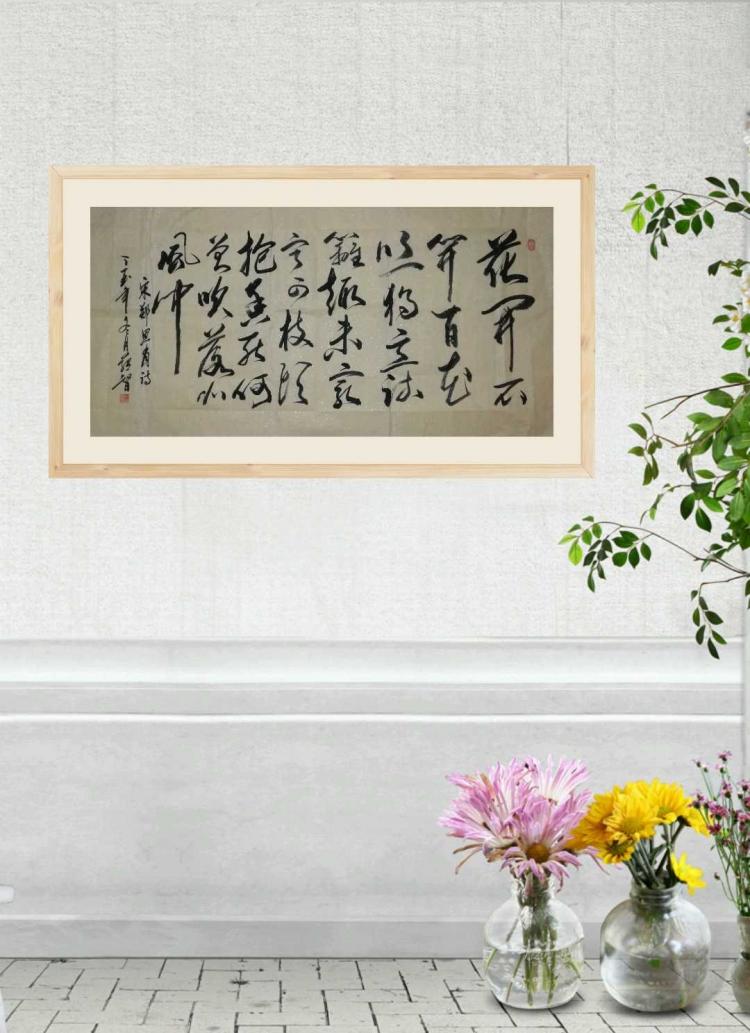 花開不
並百花
丛獨立疏
籬趣未窮
寧可枝頭
抱香死何
曾吹落北
風中
宋鄭思肖詩
丁 年冬月 智